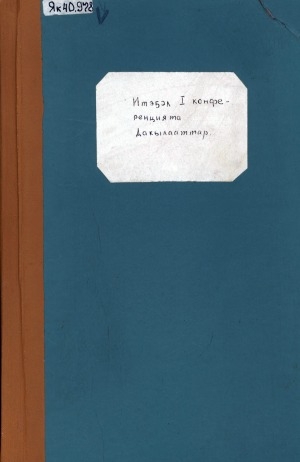 Як40.978
Итэҕэл I конфе-
ренцията
Дакылааттар.